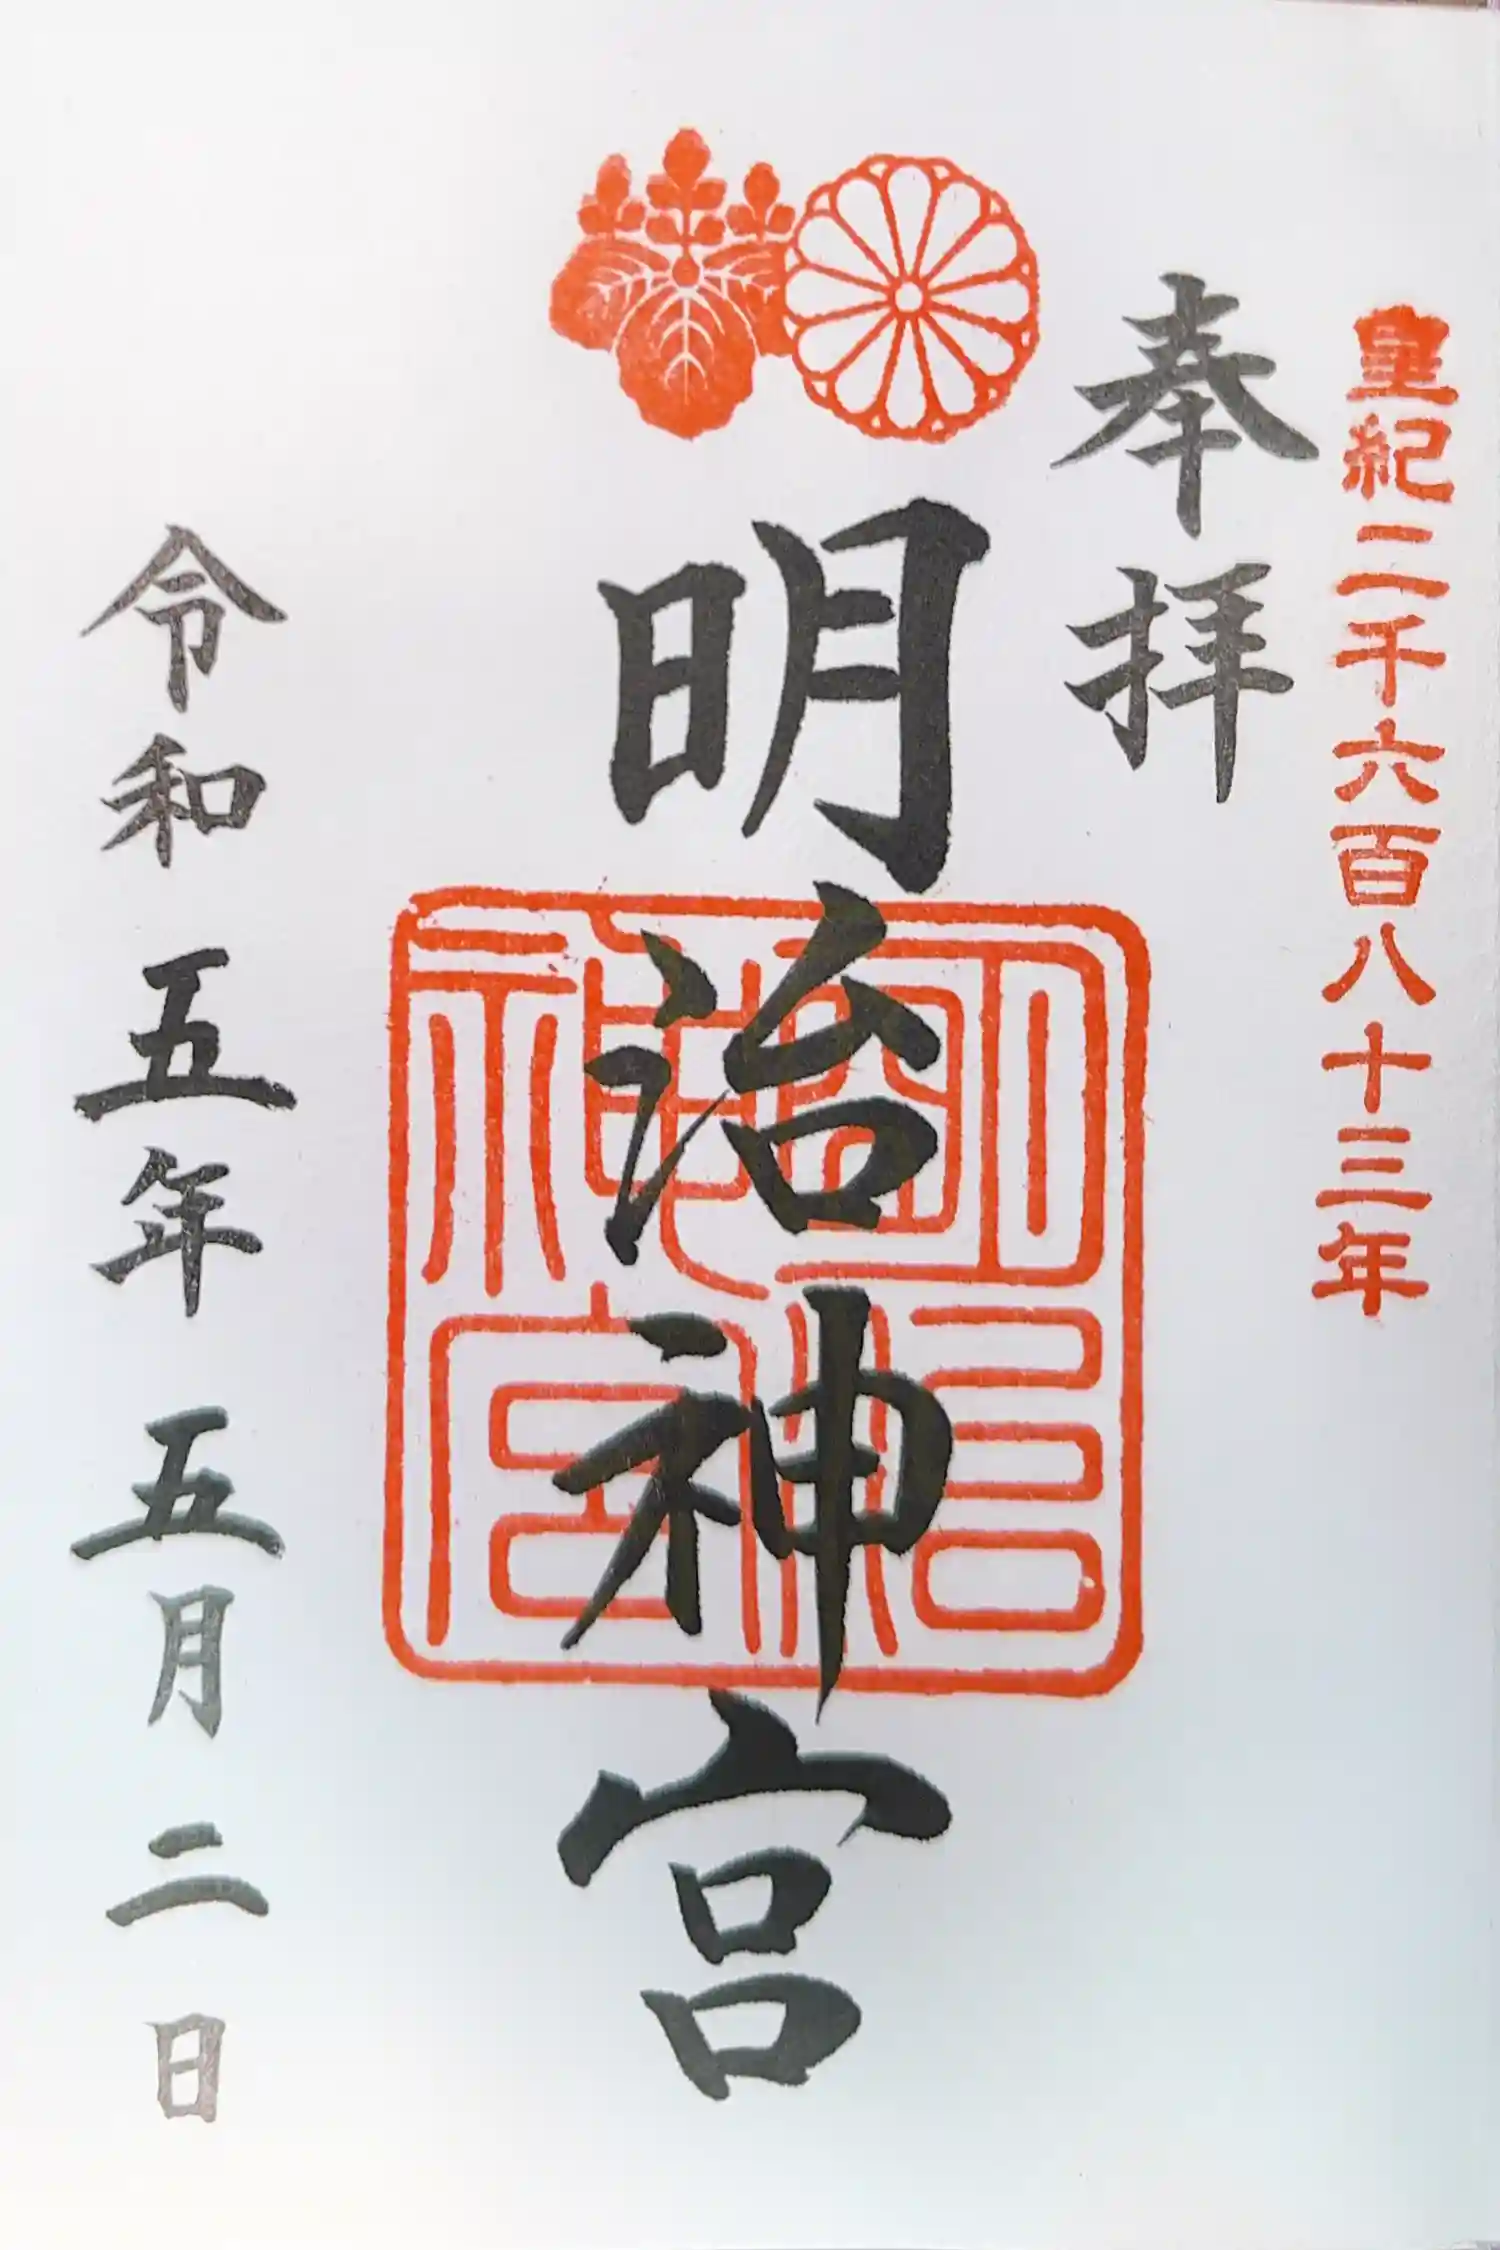 皇紀二千六百八十三年
奉拝
明治神宮
明治神宮
令和五年五月二日